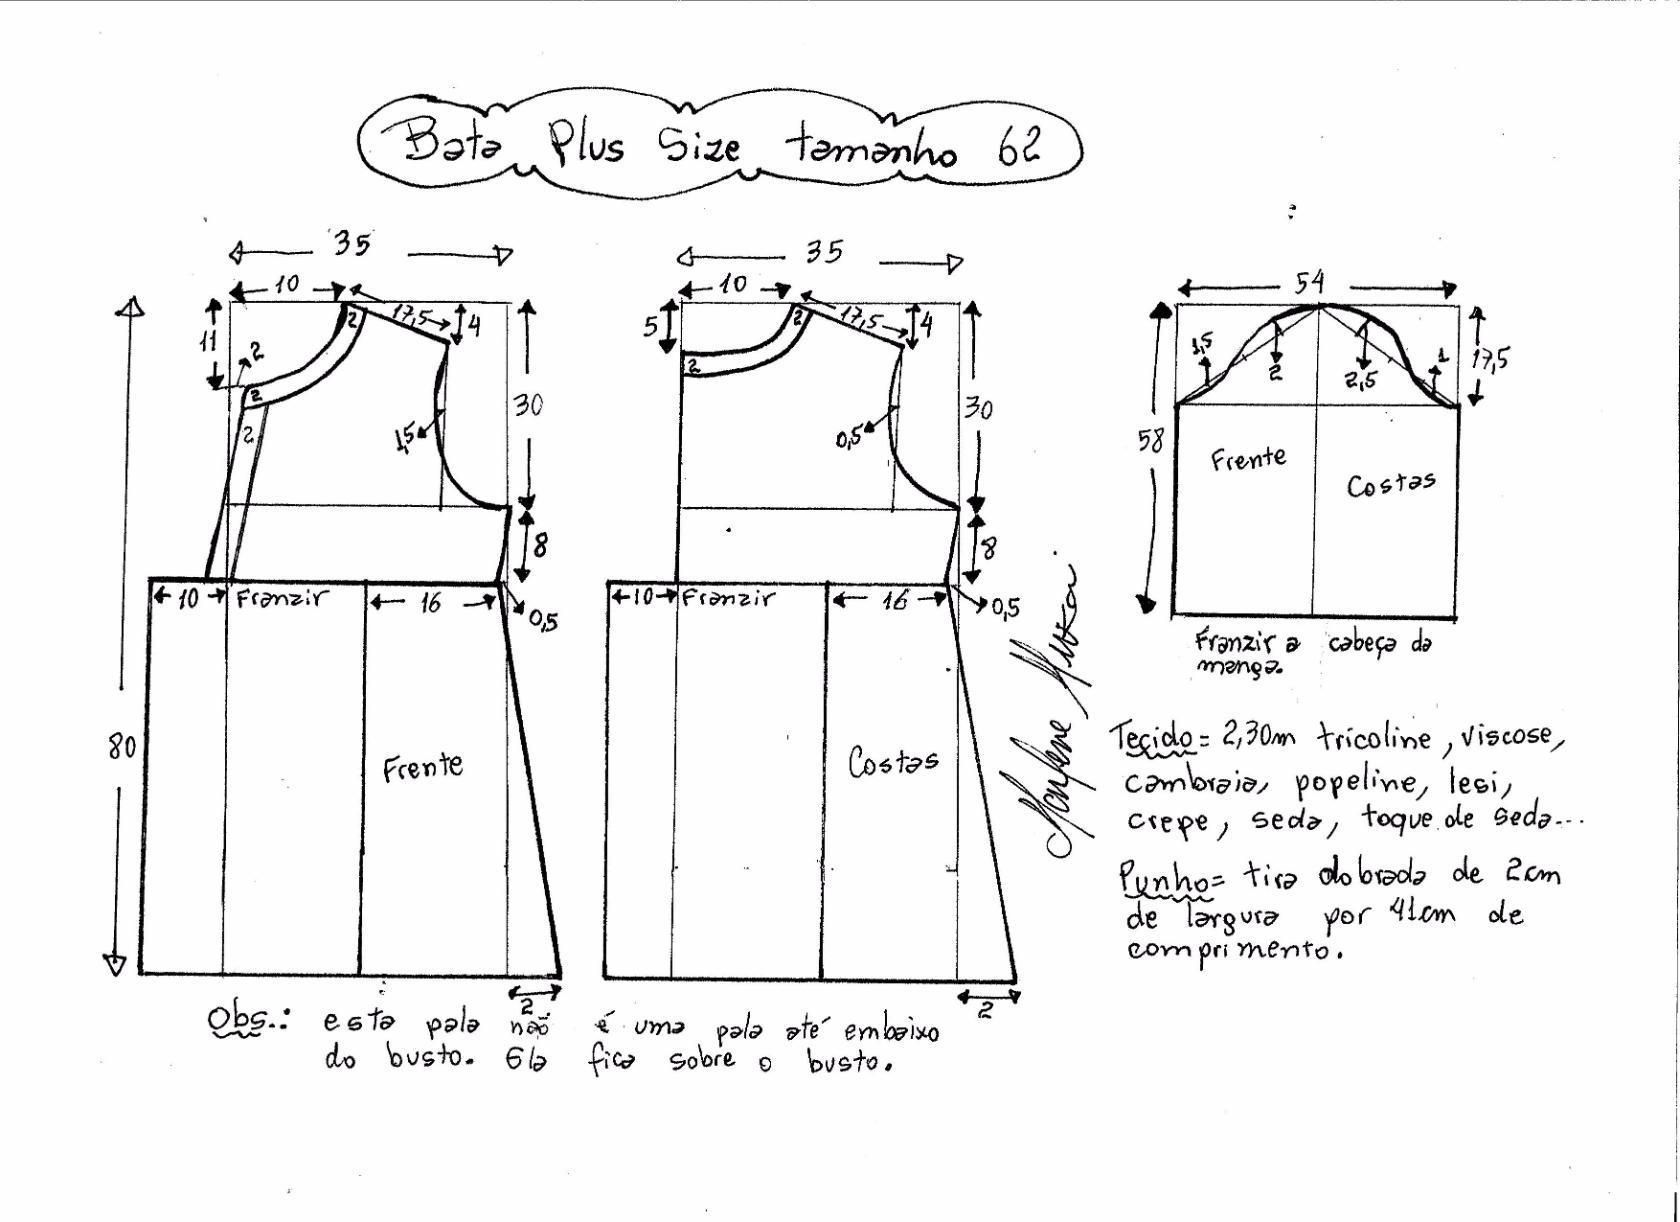 Bata Plus Size tamanho 62
35
10
17,5
4
11
2
2
2
2
30
1,5
8
10 Franzir 16
0,5
80
Frente
2
35
10
17,5
4
5
2
2
30
0,5
8
10 Franzir 16
0,5
Costas
2
54
1,5
2
2,5
1
17,5
58
Frente
Costas
Franzir a cabeça da
manga.
Tecido = 2,30m tricoline, viscose,
cambraia, popeline, lesi,
crepe, seda, toque de seda...
Punho = tira dobrada de 2cm
de largura por 41cm de
comprimento.
Obs.: esta pala não é uma pala até embaixo
do busto. Ela fica sobre o busto.